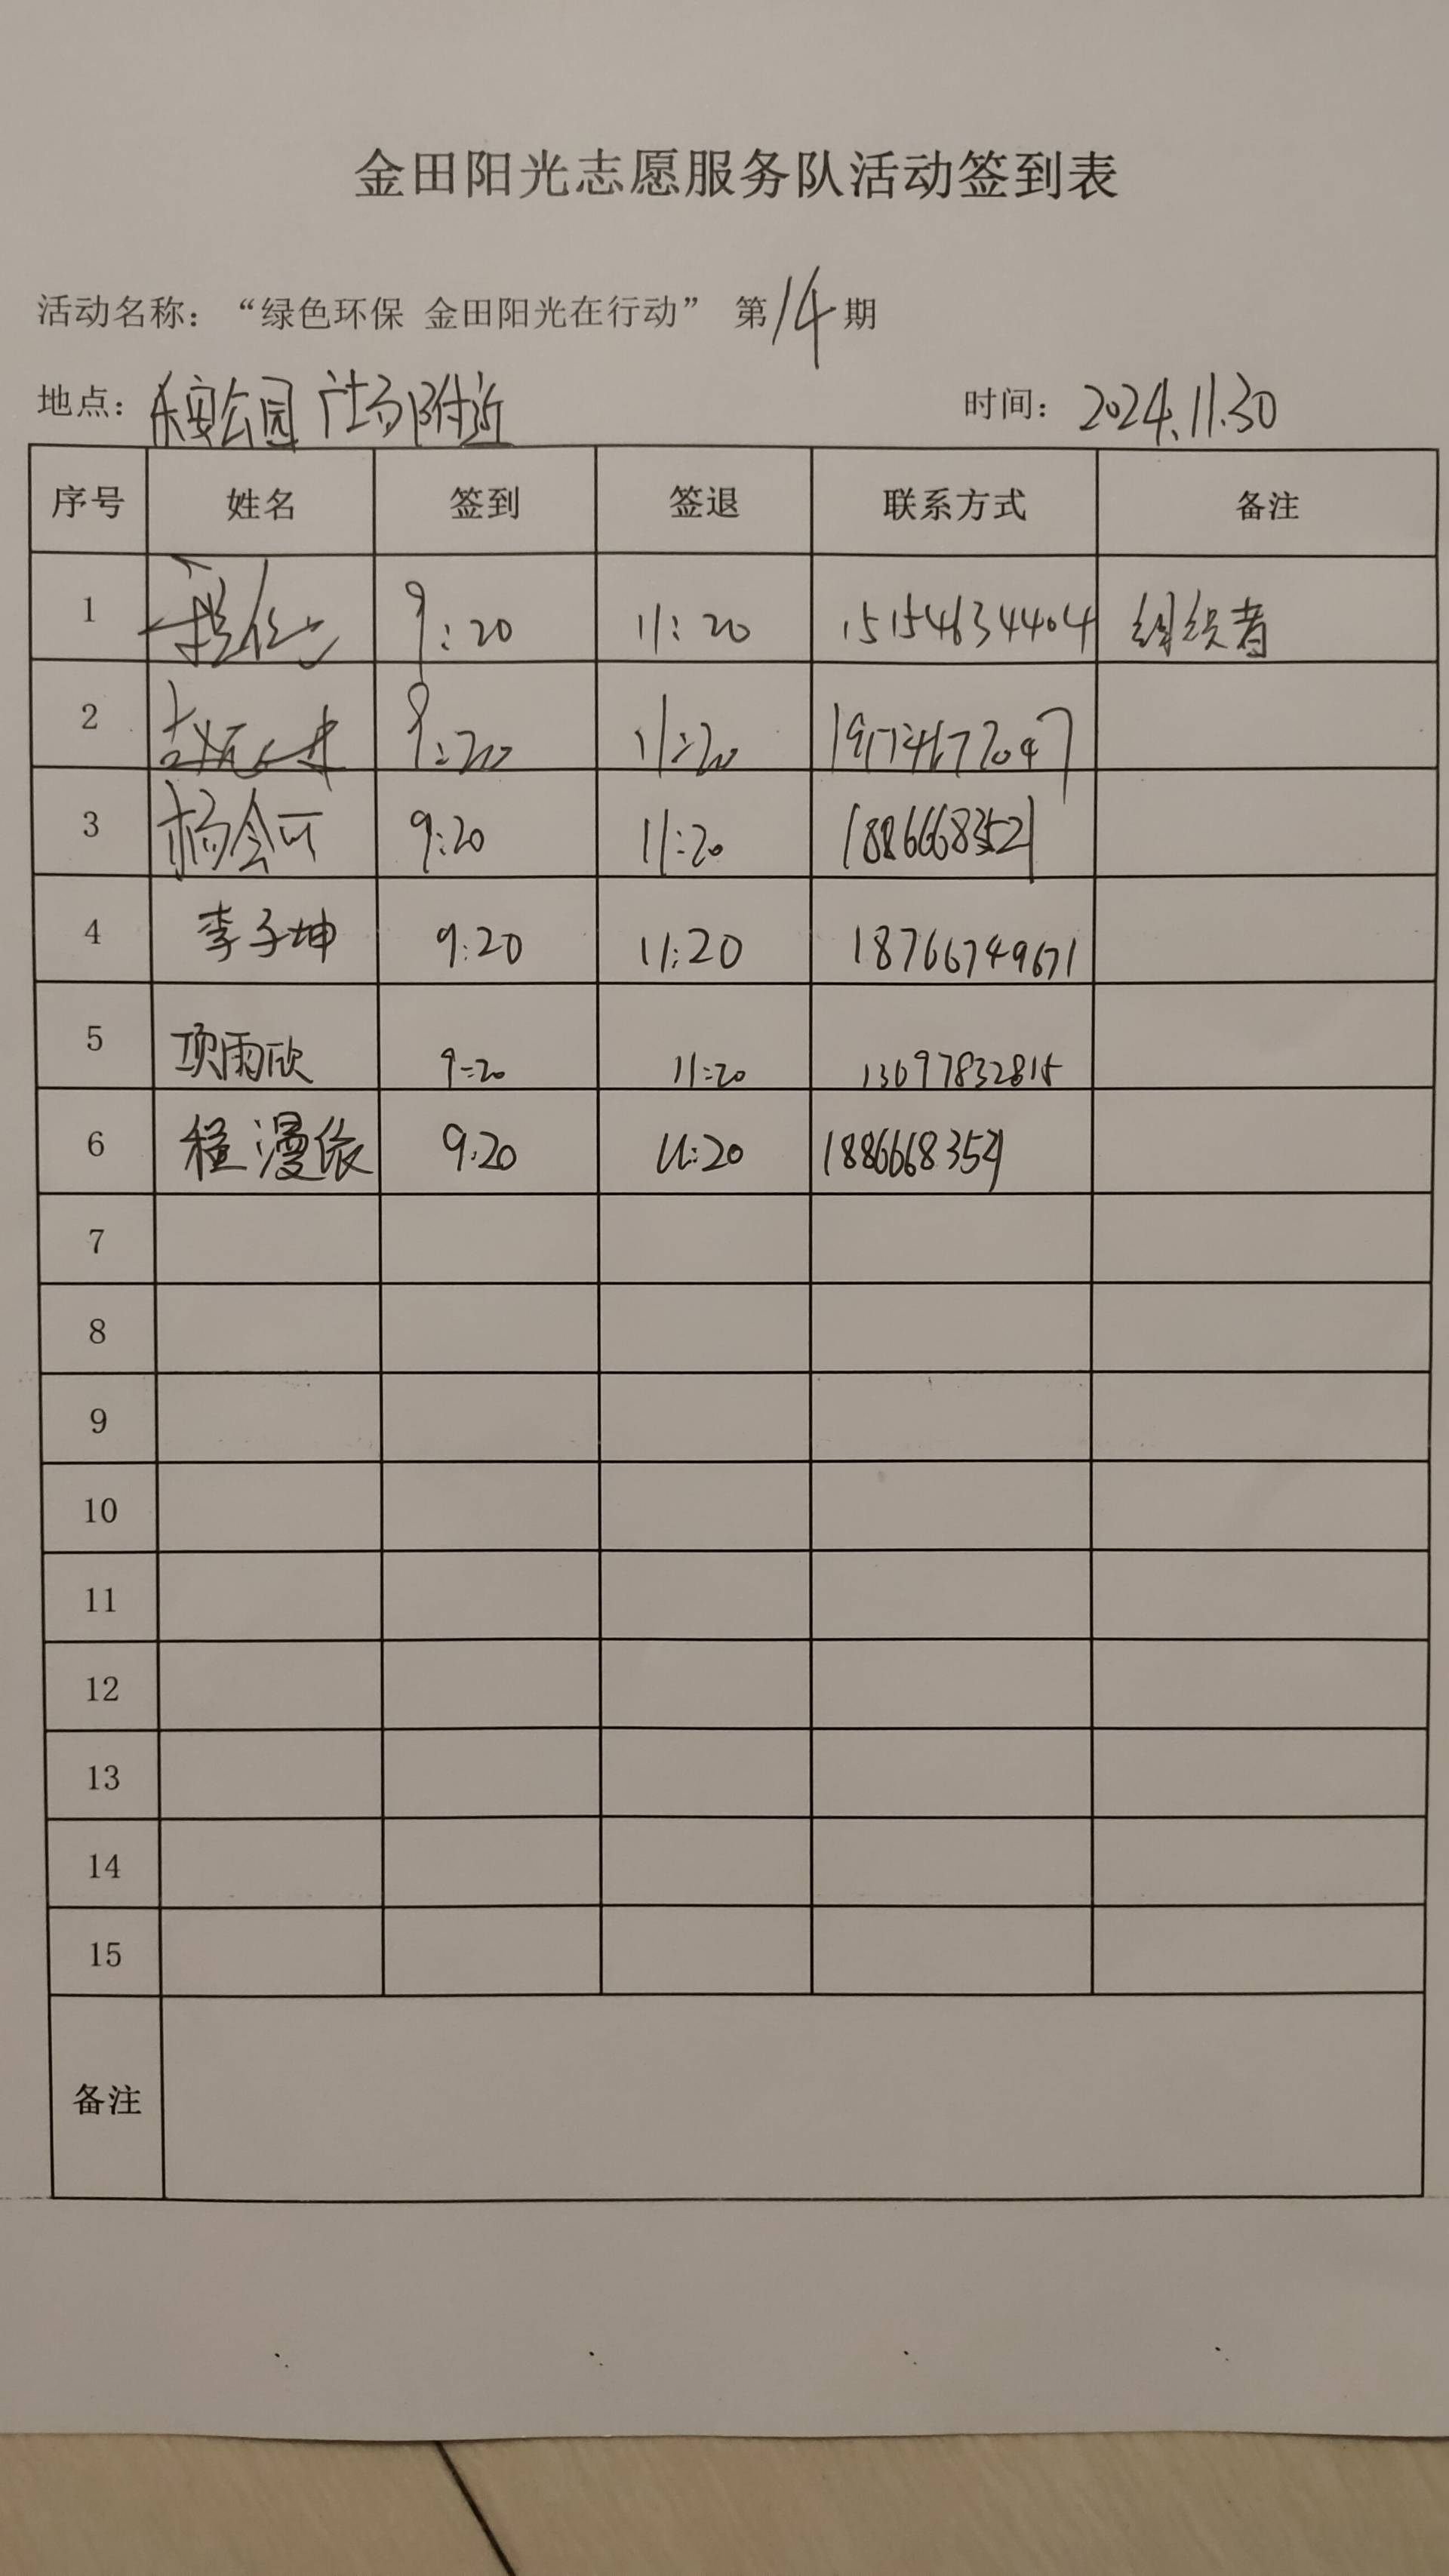 金田阳光志愿服务队活动签到表
活动名称：“绿色环保 金田阳光在行动” 第14期
地点：乐安公园广场附近 时间：2024.11.30
序号 姓名 签到 签退 联系方式 备注
1 9:20 11:20 15154634404 组织者
2 9:20 11:20
3 杨会可 9:20 11:20 18866683521
4 李子坤 9:20 11:20 18766749671
5 项雨欣 9:20 11:20 13697832815
6 程漫依 9:20 11:20 18866683521
7
8
9
10
11
12
13
14
15
备注